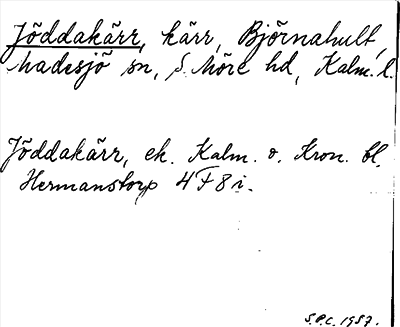 Jöddakärr, kärr, Björnahult,
Madesjö sn, S. Möre hd, Kalm. l.
Jöddakärr, ek. Kalm. o. Kron. bl.
Hermanstorp 4F8i.
S.P.C. 1957.